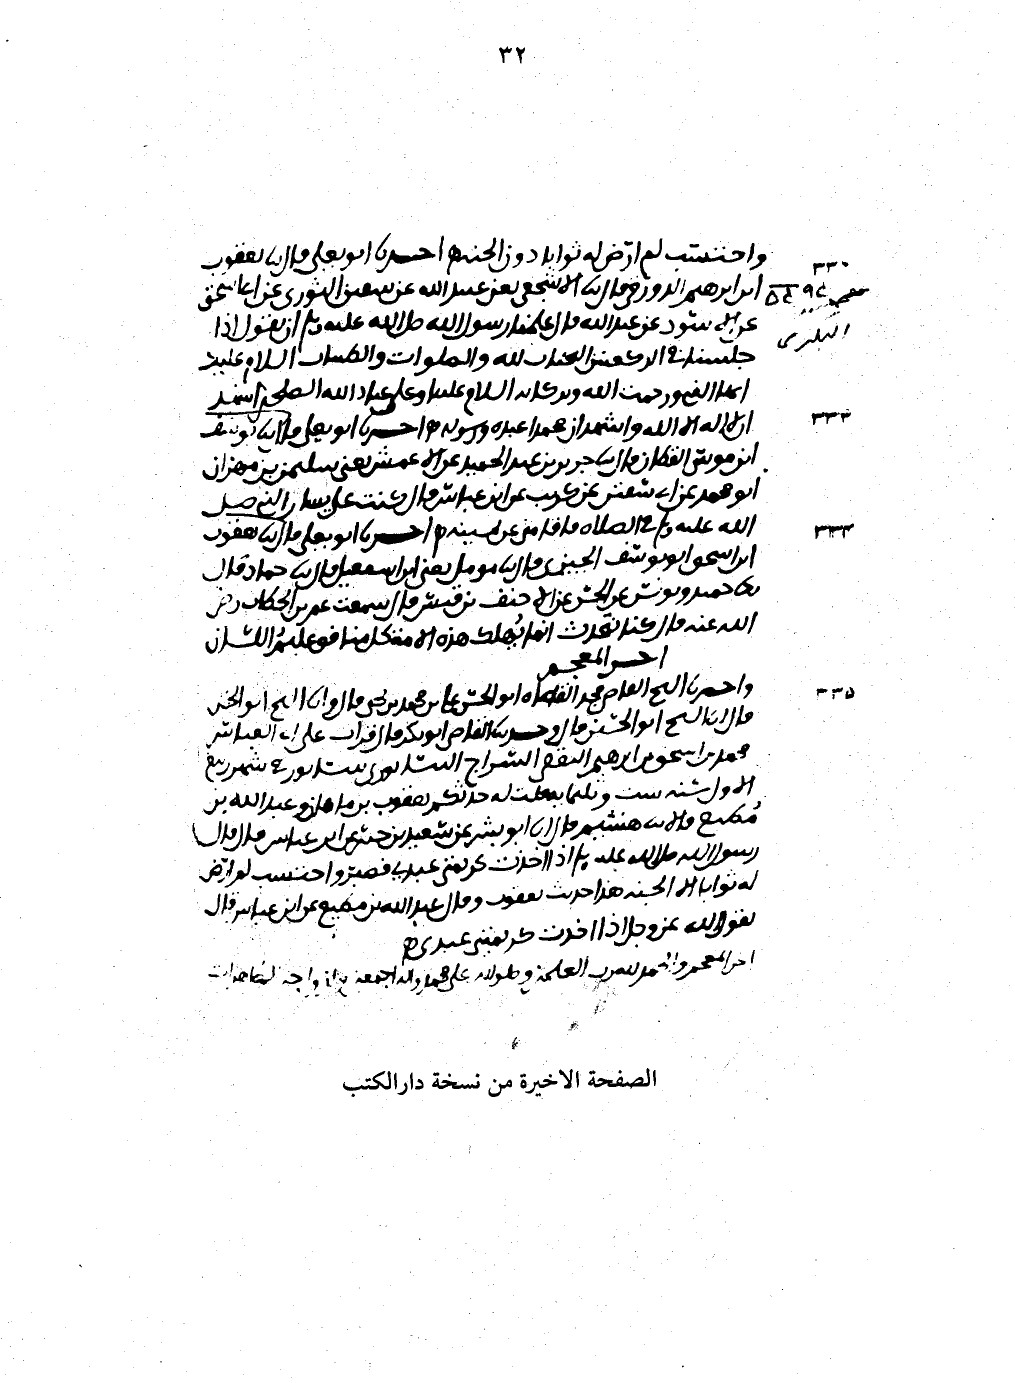 ٣٢
واحتسب لم ارض له ثوابا دون الجنه اخبرنا ابو يعلى قال نا يعقوب
٣٣٠
ابن ابرهيم الدورقي قال نا الاشجعي يعني عبيد الله عن سفين الثوري عن ابي اسحق
عن الاسود عن عبد الله قال علمنا رسول الله صلى الله عليه وسلم ان نقول اذا
جلسنا في الركعتين التحيات لله والصلوات والطيبات السلام عليك
ايها النبي ورحمت الله وبركاته السلام علينا وعلى عباد الله الصلحين اشهد
ان لا اله الا الله واشهد ان محمدا عبده ورسوله اخبرنا ابو يعلى قال نا يوسف
٣٣٢
ابن موسى القطان قال نا جرير بن عبد الحميد عن الاعمش يعني سليمن بن مهران
ابو محمد عن كريب عن ابن عباس قال كنت على يسار النبي صلى
الله عليه وسلم في الصلاه فاقامني عن يمينه اخبرنا ابو يعلى قال نا يعقوب
٣٣٣
ابن اسحق ابو يوسف قال نا مومل يعني ابن اسمعيل قال نا حماد قال
نا حميد ويونس عن الحسن عن الاحنف بن قيس قال سمعت عمر بن الخطاب رضي
الله عنه قال كنا نحدث انما يهلك هذه الامة كل منافق عليم اللسان
اخر المعجم
٣٣٥
واخبرنا الشيخ القاضي ابو الحسن علي بن محمد بن يحيى قال وانا الشيخ ابو الحسن
قال انا الشيخ ابو الحسن قال وحدثنا القاضي ابو بكر قال قرات على ابي العباس
محمد بن اسحق بن ابرهيم الثقفي السراج النيسابوري بنيسابور في شهر ربيع
الاول سنه ست وثلثمائه قلت له حدثكم يعقوب بن ماهان وعبد الله بن
مطيع قالا نا هشيم قال انا ابو بشر عن سعيد بن جبير عن ابن عباس قال قال
رسول الله صلى الله عليه وسلم اذا اخذت كريمتي عبدي فصبر واحتسب لم ارض
له ثوابا الا الجنه هذا حديث يعقوب وقال عبد الله بن مطيع عن ابن عباس قال
يقول الله عز وجل اذا اخذت كريمتي عبدي
اخر المعجم والحمد لله رب العلمين وصلواته على محمد واله اجمعين وازواجه الطاهرات
الصفحة الاخيرة من نسخة دار الكتب